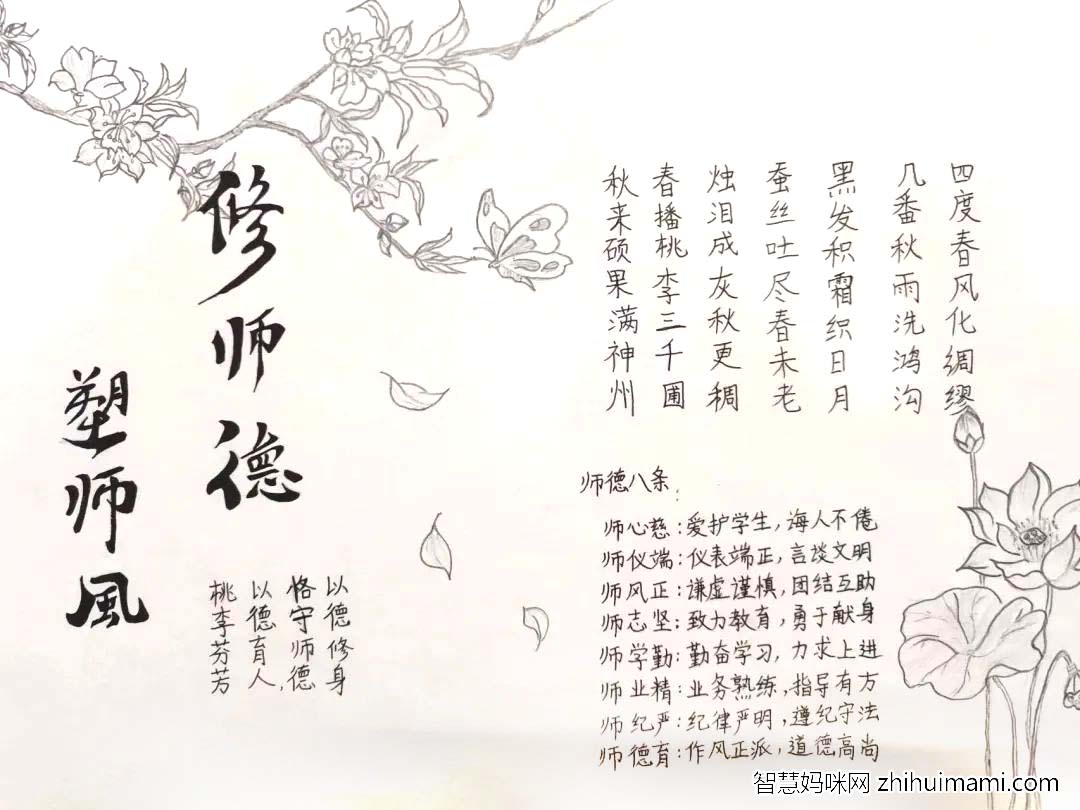 修师德
塑师風
以德修身
恪守师德
以德育人,
桃李芬芳
四度春风化绸缪
几番秋雨洗鸿沟
黑发积霜织日月
蚕丝吐尽春未老
烛泪成灰秋更稠
春播桃李三千圃
秋来硕果满神州
师德八条:
师心慈:爱护学生,海人不倦
师仪端:仪表端正,言谈文明
师风正:谦虚谨慎,团结互助
师志坚:致力教育,勇于献身
师学勤:勤奋学习,力求上进
师业精:业务熟练,指导有方
师纪严:纪律严明,遵纪守法
师德育:作风正派,道德高尚
智慧妈咪网 zhihuimami.com